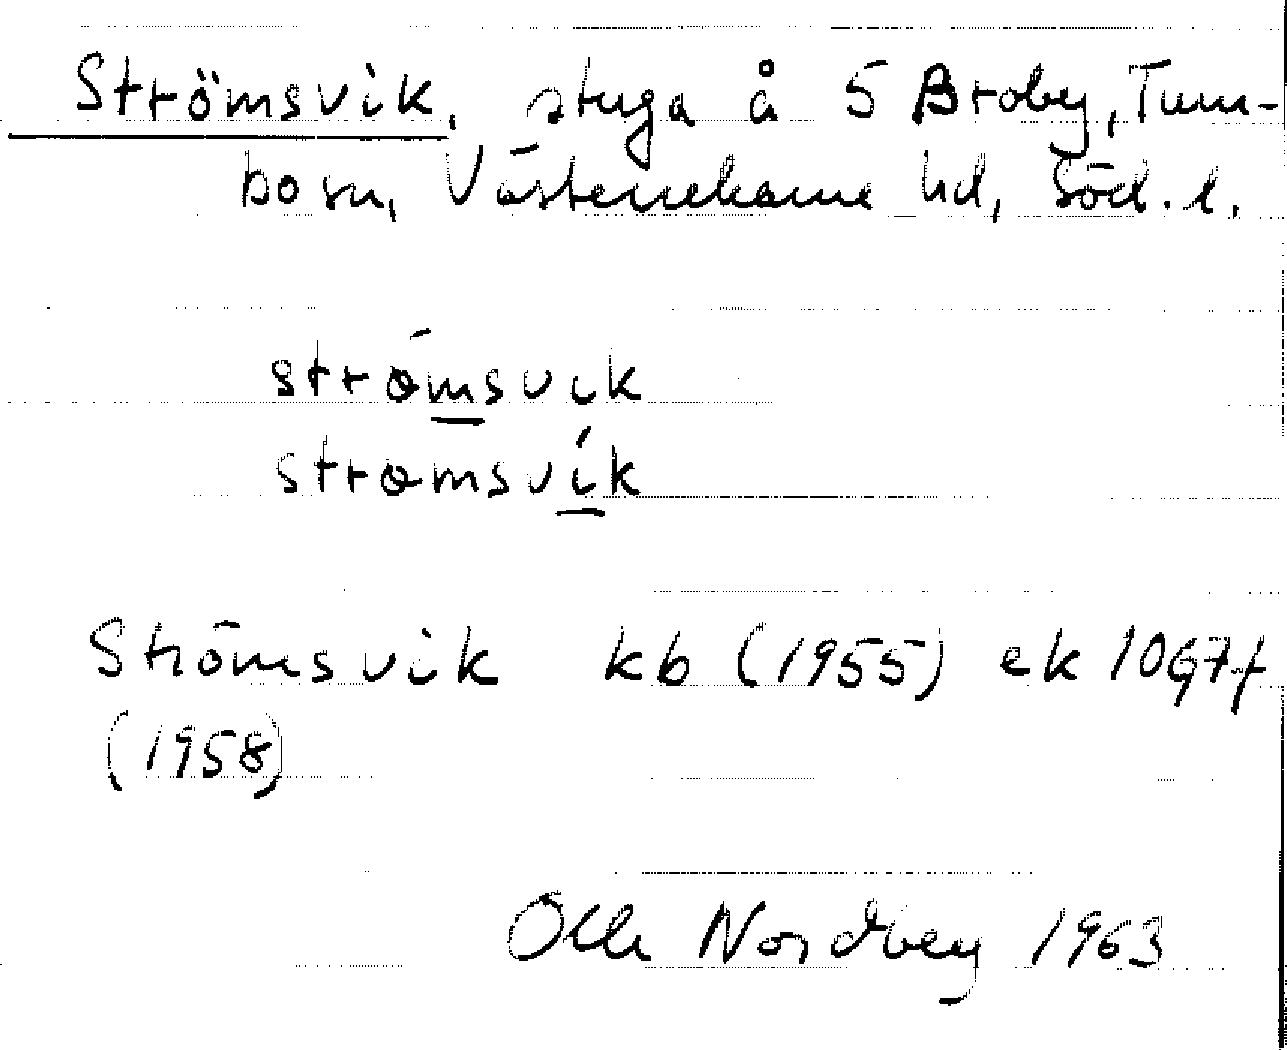 Strömsvik, stuga å 5 Broby, Tum-
bo sn, Västerrekarne hd, Söd. l.
strømsvik
strømsvik
Strömsvik kb (1955) ek 10G7f
(1958)
Olle Nordberg 1963